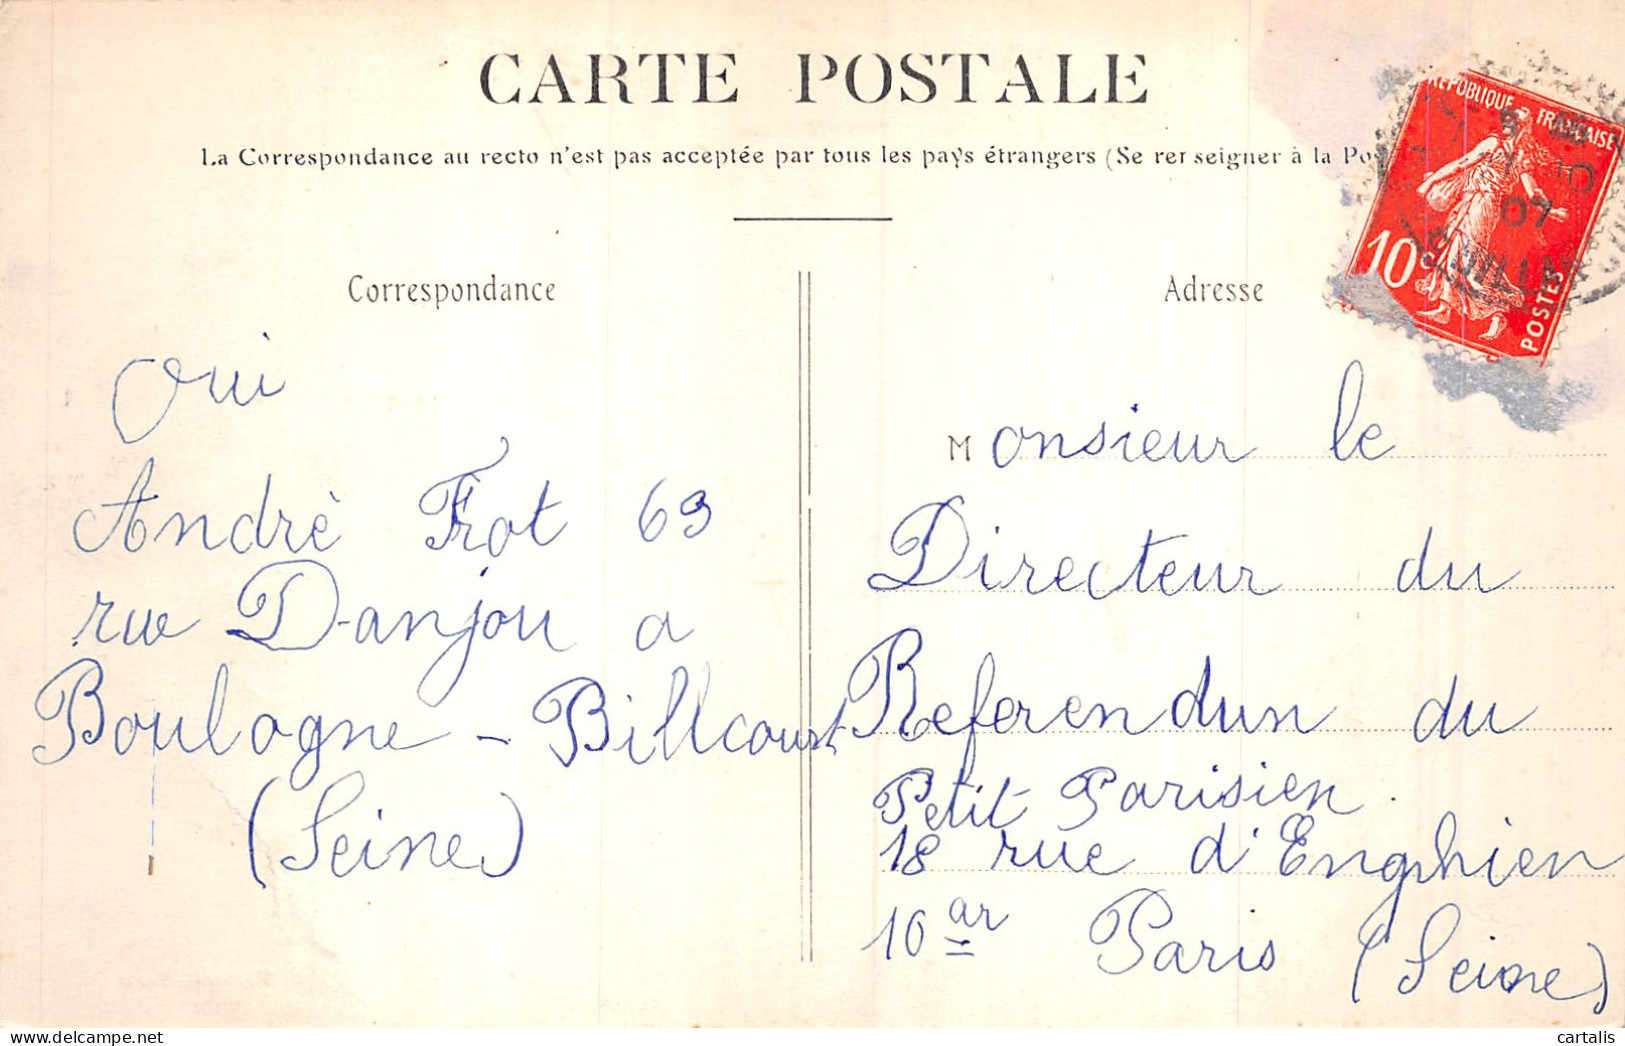 CARTE POSTALE
La Correspondance au recto n'est pas acceptée par tous les pays étrangers (Se renseigner à la Po
Correspondance
Oui
Andrè Frot 69
rue D-anjou a
Boulogne - Billcourt
(Seine)
Adresse
Monsieur le
Directeur du
Referendun du
Petit Parisien.
18 rue d'Enghien
10 ar Paris (Seine)
REPUBLIQUE FRANÇAISE
10c
POSTES
07
cartalis